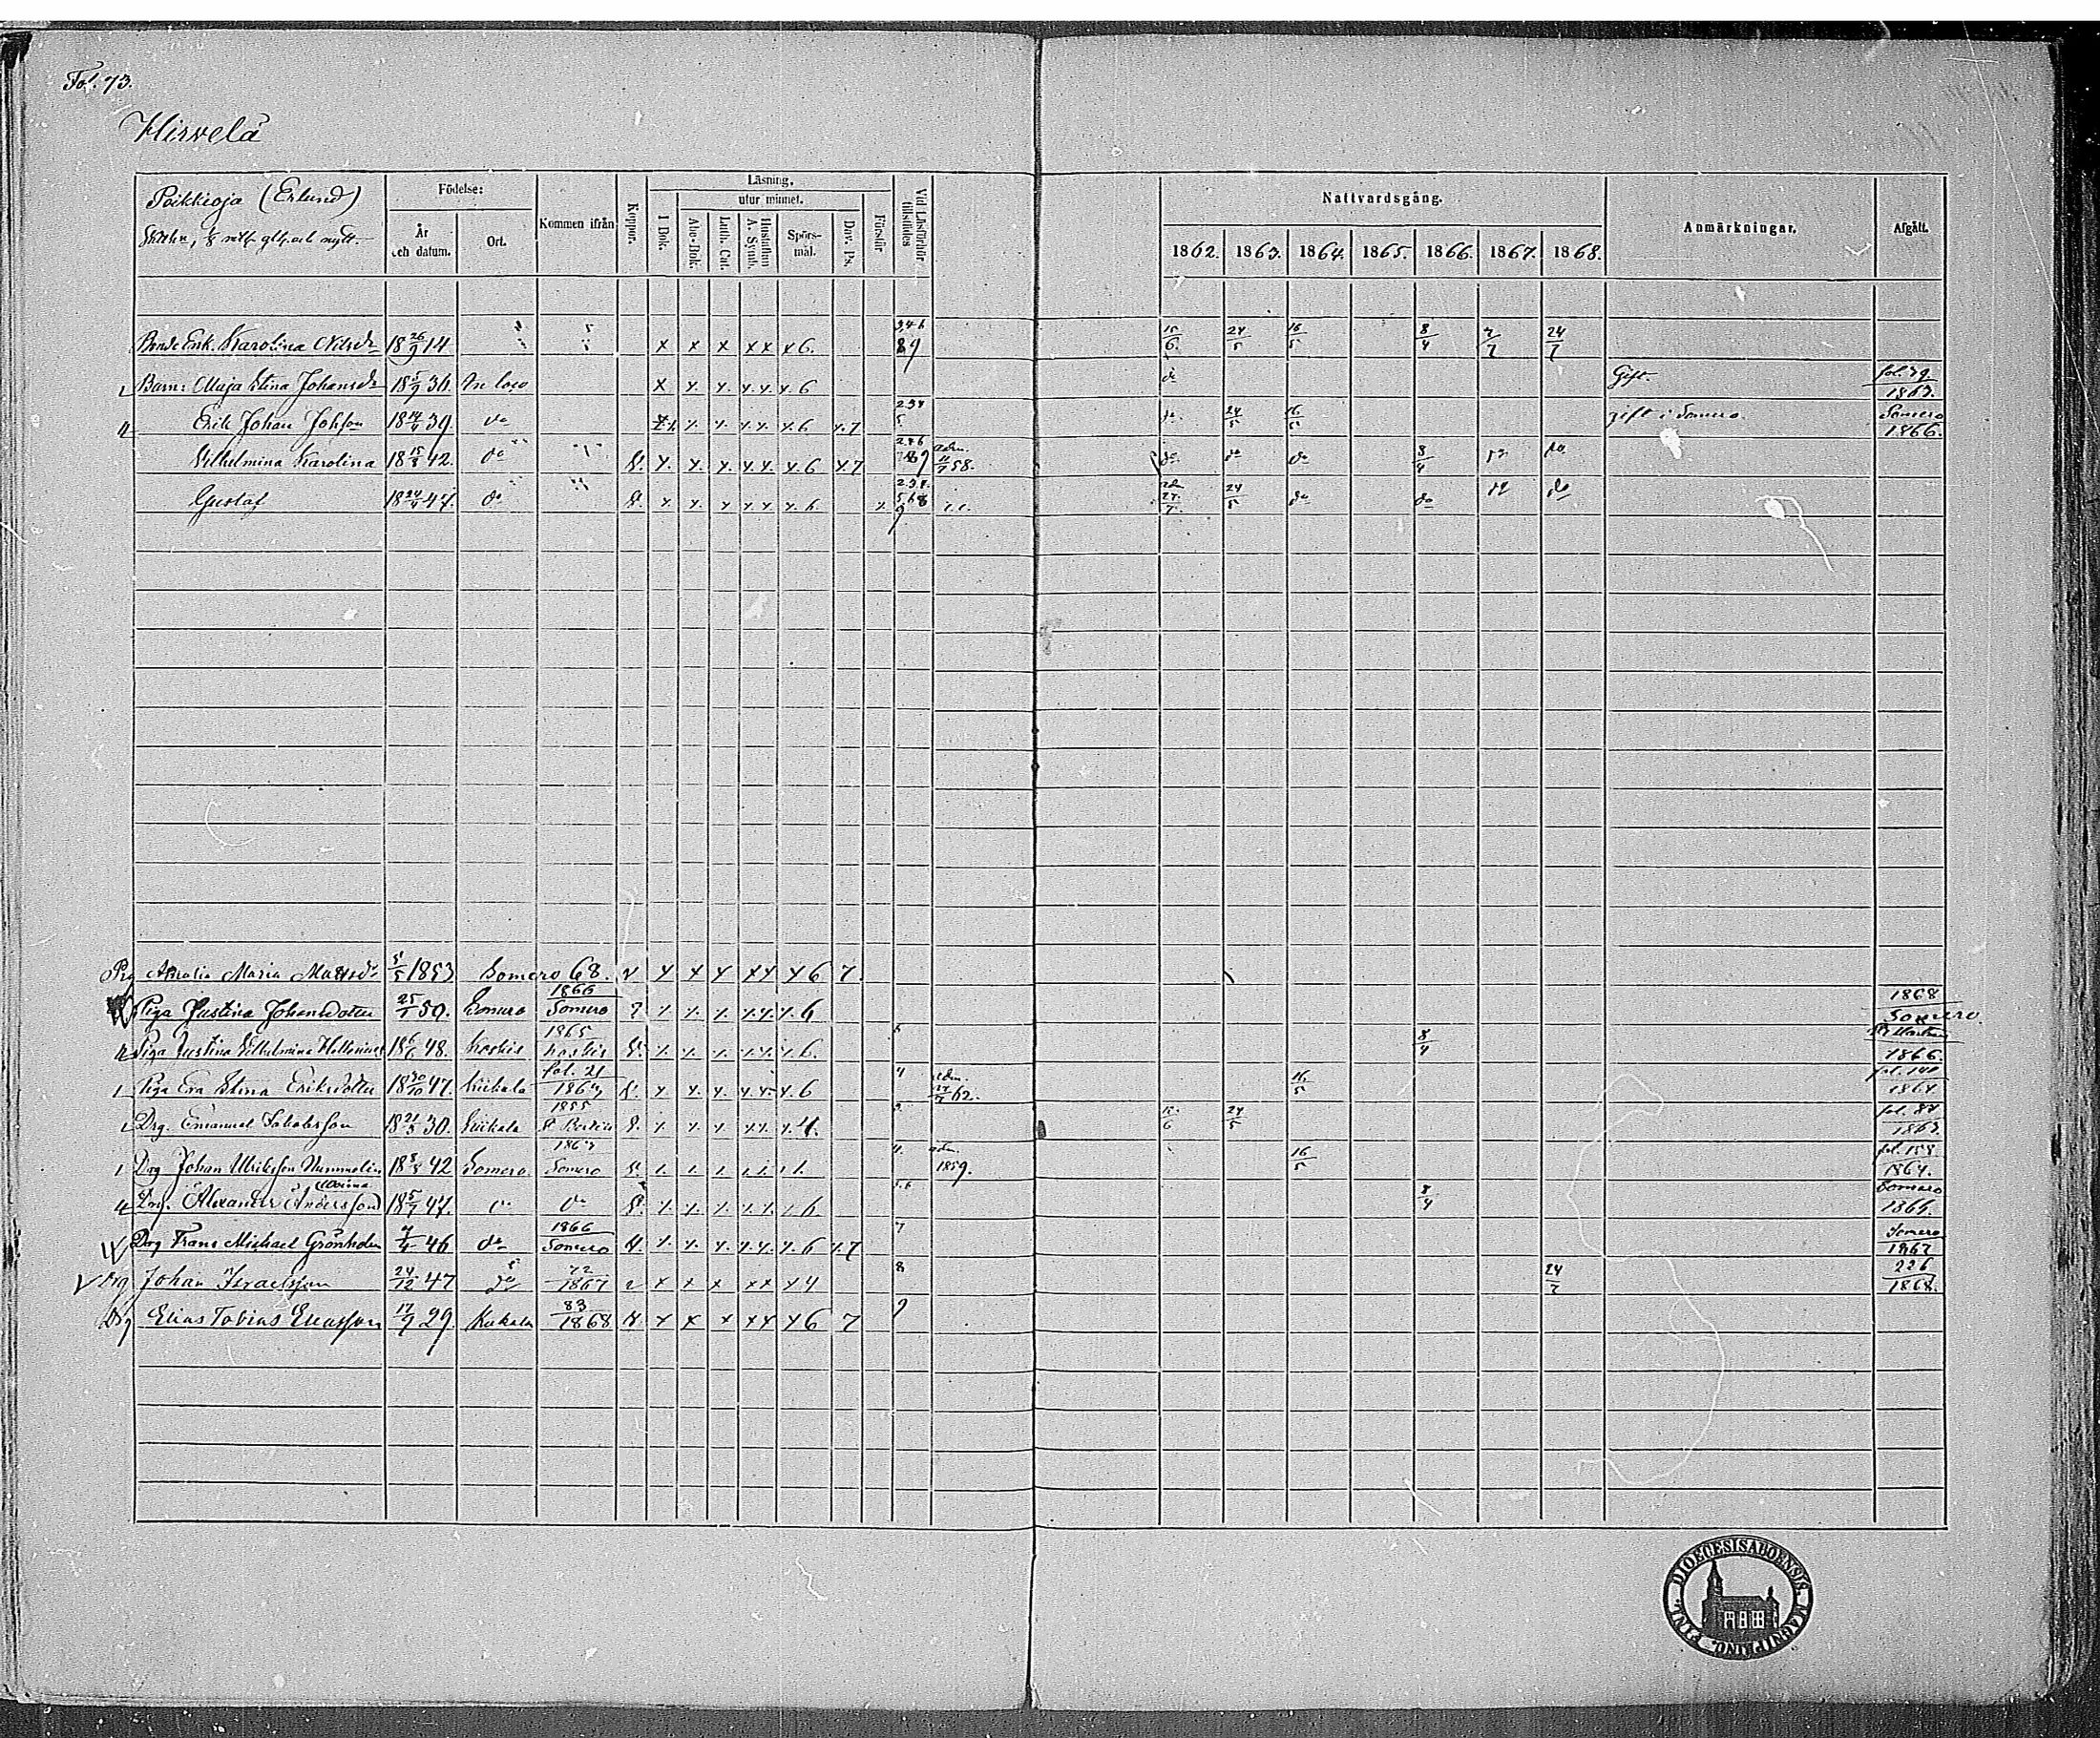 Fol. 73.
Hirvelä
Poikkioja (Erlund)
Födelse: År och datum. Ort. Kommen ifrån Koppor. Läsning. I Bok. utur minnet. Abc-Bok. Luth. Cat. Hustaflan A. Symb. Spörs-mål. Dav. Ps. Förstår Vid Läsförhör tillstädes Nattvardsgång. 1862. 1863. 1864. 1865. 1866. 1867. 1868. Anmärkningar. Afgått.
Bonde Enk. Karolina Nilsdr 18 26/9 14 x x x x x x 6. 346 89 15/6 24/5 16/5 8/4 7/7 24/7
Barn: Maja Stina Johansdr 18 5/9 36 In loco x x. x. x. x. x. 6 do Gift. fol. 79. 1863.
Erik Johan Johsson 18 14/4 39. do x. x. x. x. x. 6 x. 7 234 5 do 24/5 16/5 gift i Somero. Somero 1866.
Wilhelmina Karolina 18 15/8 42. do x. x. x. x. x. x. 6 x. 7 246 789 adm. 11/7 58. do do do 8/4 do do
Gustaf 18 24/4 47. do x. x. x x x x. 6. x. 234. 568 9 24/5 do do do do
Pig Amalia Maria Mattsdr 5/5 1853 Somero 68. v x x x x x x 6 7.
Piga Justina Johansdotter 25/7 50. Somero 1866 Somero x. x. x. x. x. x. 6 1868 Somero.
Piga Justina Wilhelmina 18 6/6 48. Koskis 1865 Koskis x. x. x. x. x. x. 6. 8/4 St Marten 1866.
Piga Eva Stina Eriksdotter 18 30/10 47. Kiikala fol. 21 1863 x x. x. x. x. x. 6 4 adm. 62. 16/5 fol. 140 1864
Drg. Emanuel Jakobsson 18 21/3 30. Kiikala 1855 St Bertils x. x. x. x. x. x. 4. 15/6 24/5 fol. 87 1863.
Drg Johan Ulriksson Nummelin 18 5/8 42 Somero. 1863 Somero 4. adm. 1859. 16/5 fol. 158. 1864.
Drg. Alexander Andersson 18 5/7 47. do do x. x. x. x. x. 6 5.6 8/4 Somero 1866.
Drg Frans Michael Grönholm 7/4 46 do 1866 Somero x. x. x. x. x. x. 6 x. 7 7 Somero 1867
Drg Johan Israelsson 24/12 47 do 72 1867 x x x x x x 4 8 24/7 226 1868.
Drg Elias Tobias Eliasson 17/9 29. Kiikala 83 1868 x x x x x x 6 7 9
DIOECESIS ABOENSIS. MAGNI PRINC. FINL.